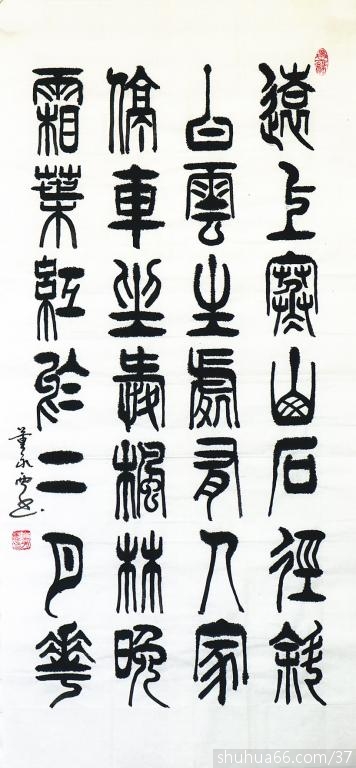 遠上寒山石徑斜
白雲生處有人家
停車坐愛楓林晚
霜葉紅於二月華
shuhua66.com/37